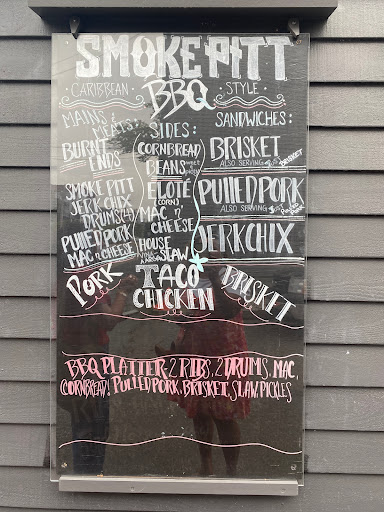 SMOKE PITT
CARIBBEAN BBQ STYLE
MAINS &
MEATS:
BURNT
ENDS
SMOKE PITT
JERK CHIX
DRUMS (4)
PULLED PORK
MAC n' CHEESE
SIDES:
CORNBREAD
BEANS
ELOTÉ
(CORN)
MAC n'
CHEESE
HOUSE
SLAW
SANDWICHES:
BRISKET
ALSO SERVING JUST BRISKET
PULLED PORK
ALSO SERVING JUST PULLED PORK
JERK CHIX
PORK TACO BRISKET
CHICKEN
BBQ PLATTER-2 RIBS, 2 DRUMS, MAC,
CORNBREAD, PULLED PORK, BRISKET, SLAW, PICKLES